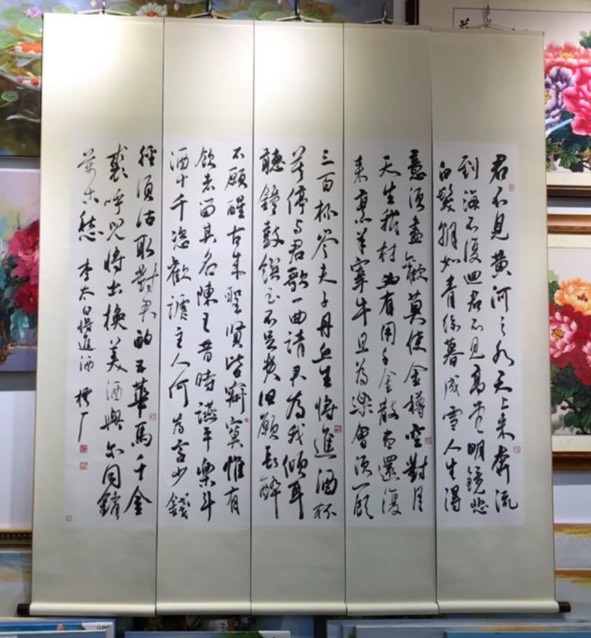 君不見黄河之水天上来奔流
到海不復回君不見高堂明鏡悲
白髮朝如青絲暮成雪人生得
意須盡歡莫使金樽空對月
天生我材必有用千金散尽還復
来烹羊宰牛且為樂會須一飲
三百杯岑夫子丹丘生將進酒杯
莫停与君歌一曲請君為我傾耳
聽鐘鼓饌玉不足貴但願長醉
不願醒古来聖賢皆寂寞惟有
飲者留其名陳王昔時讌平樂斗
酒十千恣歡謔主人何為言少錢
徑須沽取對君酌五華馬千金
裘呼兒將出換美酒與尔同銷
萬古愁 李太白將進酒